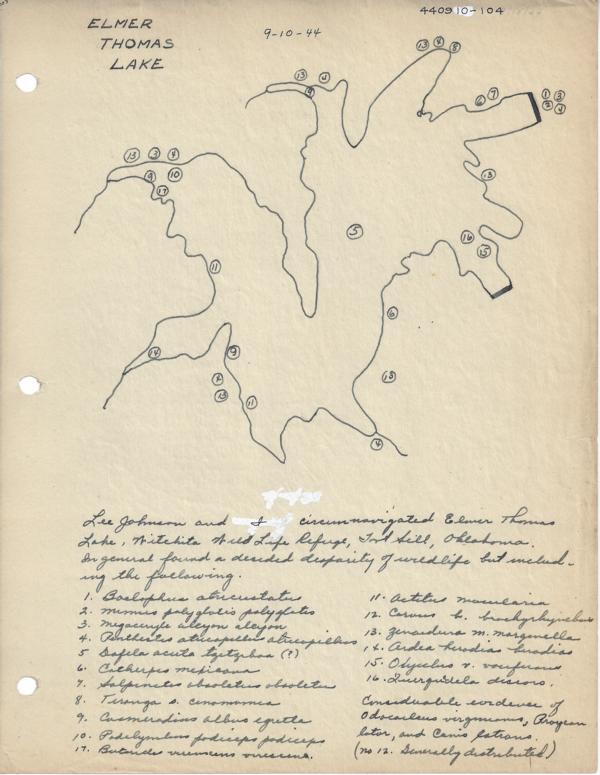 440910-104
ELMER
THOMAS
LAKE
9-10-44
13 4 8
13 4
9
6 7
1 3
2 4
13 3 4
9 10
17
13
5
16
15
11
6
14
9
4
13
11
15
4
Lee Johnson and I circumnavigated Elmer Thomas
Lake, Witchita Wild Life Refuge, Fort Sill, Oklahoma.
In general found a decided disparity of wildlife but includ-
ing the following.
1. Baelophus atricristatus
2. Mimus polyglotis polyglotis
3. Megaceryle alcyon alcyon
4. Penthestes atricapillus atricapillus
5 Dafela acuta tzitzihoa (?)
6. Catherpes mexicana
7. Salpinctes obsoletus obsoletus
8. Toranga s. cinnamomea
9. Casmerodius albus egretta
10. Podilymbus podiceps podiceps
17. Butorides virescens virescens.
11. Actitus macularia
12. Corvus b. brachyrhynchos
13. Zenaidura m. marginella
14. Ardea herodias herodias
15. Oxyechus v. vociferus
16. Querquedela discors.
Considerable evidence of
Odocoileus virginianus, Procyon
lotor, and Canis latrans.
(no 12. Generally distributed)